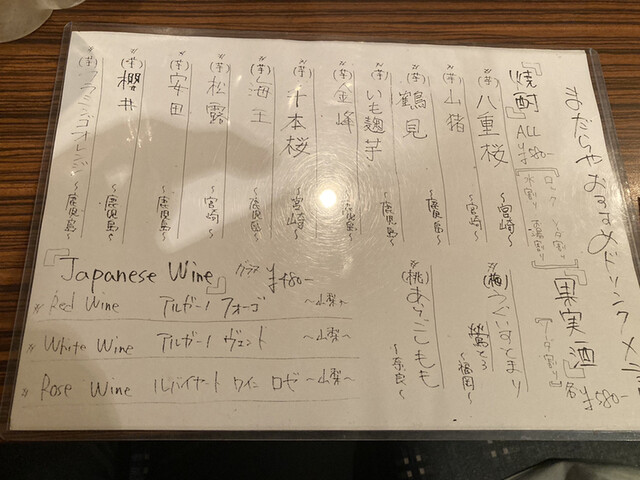 まだいやおすすめドリンクメ
『焼酎』ALL ¥580-
(芋)八重桜 〜宮崎〜
(芋)山猪
(芋)鶴見 〜鹿児島〜
(芋)いも麹芋 〜鹿児島〜
(芋)金峰 〜鹿児島〜
(芋)千本桜 〜宮崎〜
(芋)海王 〜鹿児島〜
(芋)松露 〜宮崎〜
(芋)安田 〜鹿児島〜
(芋)櫻井 〜鹿児島〜
(芋)フラミンゴオレンジ 〜鹿児島〜
『果実酒』各¥580-
(梅)うぐいすとまり
鶯とろ 〜福岡〜
(桃)あらごしもも 〜奈良〜
『Japanese Wine』グラス ¥480-
Red Wine アルガーノ フォーゴ 〜山梨〜
White Wine アルガーノ ヴェント 〜山梨〜
Rose Wine ルバイヤート ワイン ロゼ 〜山梨〜